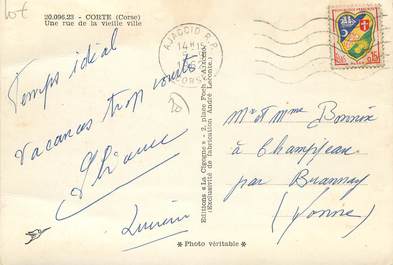 lot
20.096.23 - CORTE (Corse)
Une rue de la vieille ville
AJACCIO R.P.
CORSE
Temps idéal
Vacances trop courtes
Lucien
Editions «La Cigogne» - 2, place Foch - Ajaccio
(Exclusivité de fabrication André Leconte)
* Photo véritable *
Mr et Mme Bonnin
à Champjean
par Brannay
(Yonne)